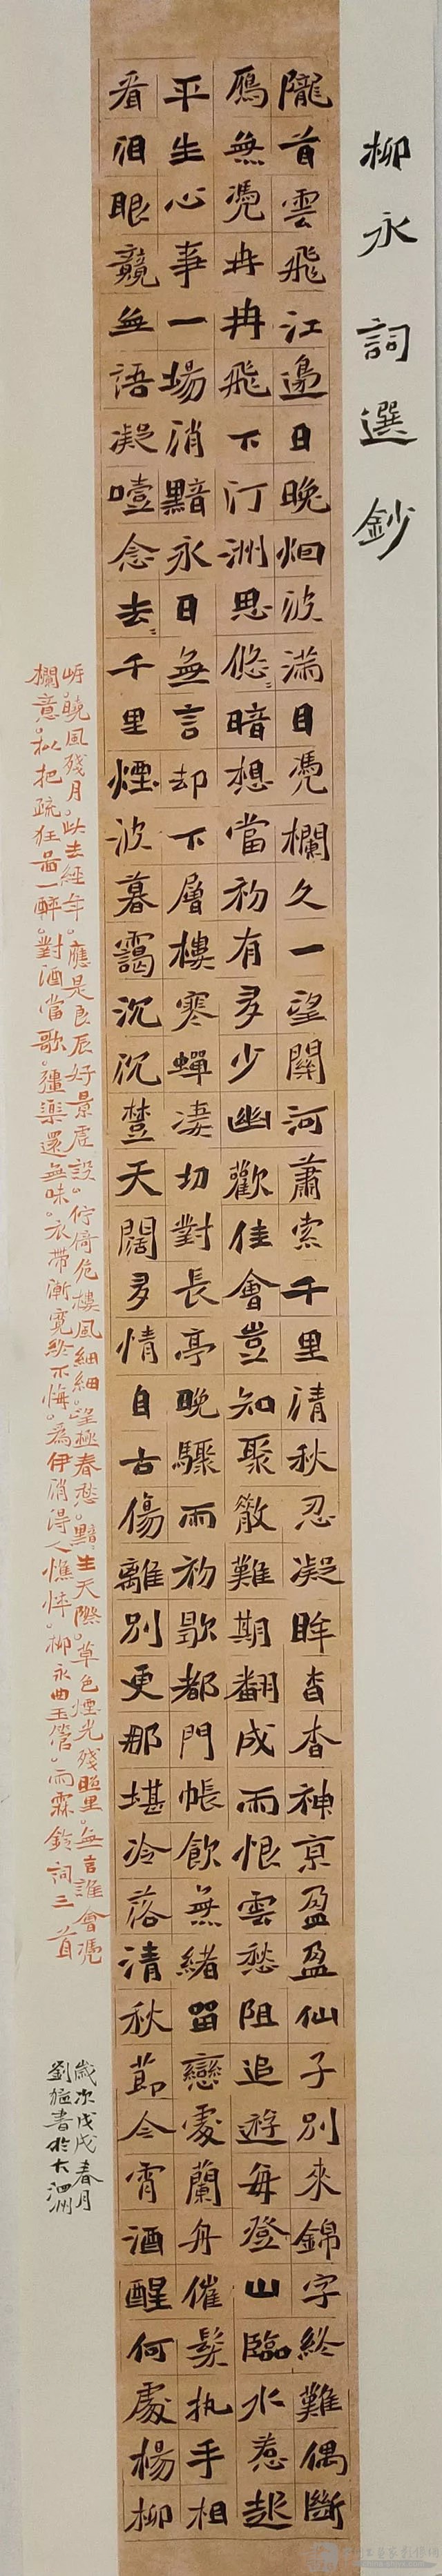 柳永詞選鈔
隴首雲飛江邊日晚烟波滿目憑欄久一望關河蕭索千里清秋忍凝眸杳杳神京盈盈仙子別來錦字終難偶斷
鴈無憑冉冉飛下汀洲思悠〻暗想當初有多少幽歡佳會豈知聚散難期翻成雨恨雲愁阻追遊每登山臨水惹起
平生心事一場消黯永日無言却下層樓寒蟬淒切對長亭晚驟雨初歇都門帳飲無緒留戀處蘭舟催發执手相
看泪眼競無語凝噎念去〻千里煙波暮靄沉沉楚天闊多情自古傷離別更那堪冷落清秋節今宵酒醒何處楊柳
岸曉風殘月。此去經年。應是良辰好景虛設。佇倚危樓風細細。望極春愁。黯〻生天際。草色煙光殘照里。無言誰會憑
欄意。拟把疏狂圖一醉。對酒當歌。彊樂還無味。衣帶漸寬終不悔。為伊消得人憔悴。柳永曲玉管。雨霖鈴詞三首
歲次戊戌春月
劉書於大泗洲